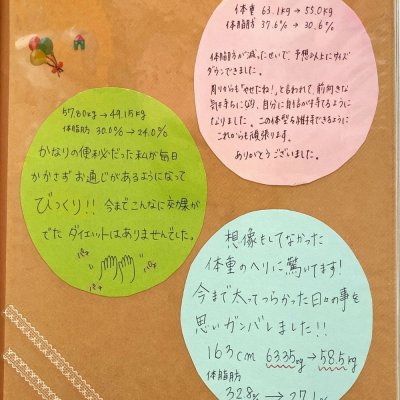 体重 63.1kg → 55.0kg
体脂肪 37.6% → 30.6%
体脂肪が減ったせいで、予想以上にサイズ
ダウンできました。
周りからも「やせたね!」と言われて、前向きな
気持ちになり、自分に自信が持てるように
なりました。この体型を維持できるように
これからも頑張ります。
ありがとうございました。
57.80kg → 49.15kg
体脂肪 30.0% → 24.0%
かなりの便秘だった私が毎日
かかさずお通じがあるようになって
びっくり!! 今までこんなに効果が
でた ダイエットはありませんでした。
想像もしてなかった
体重のヘリに驚いてます!
今まで太ってつらかった日々の事を
思いガンバレました!!
163cm 63.35kg → 58.5kg
体脂肪
32.8% → 27.1%